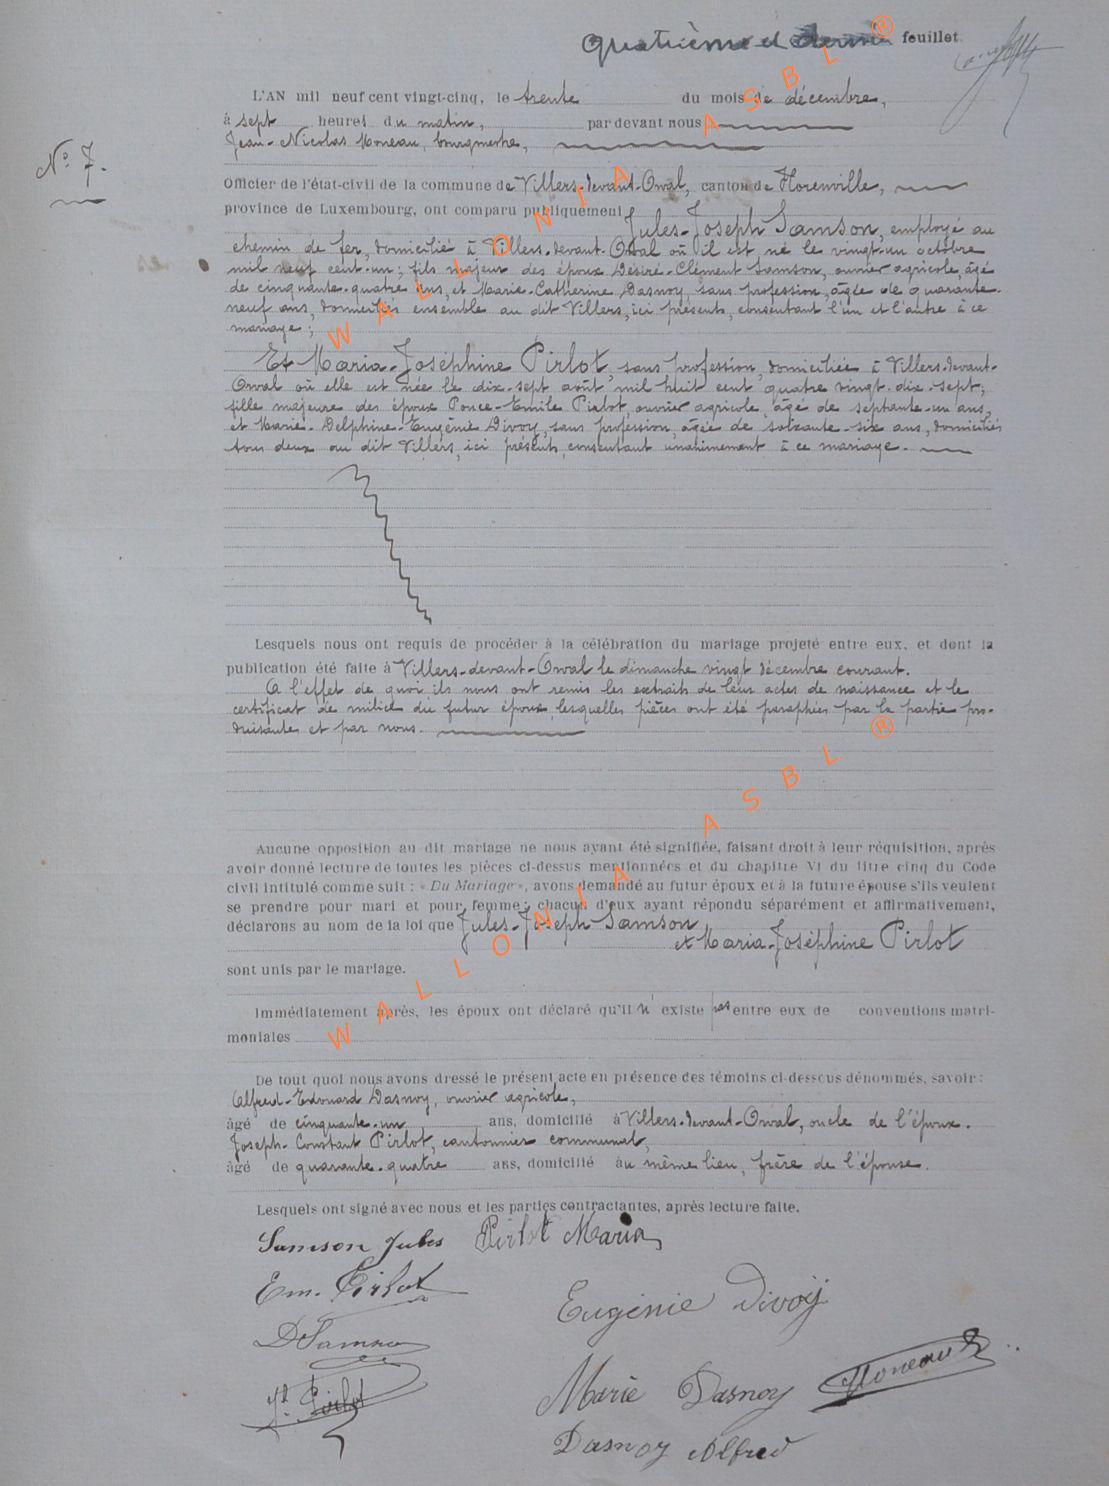 Quatrième et dernier feuillet
N° 7.
L'AN mil neuf cent vingt-cinq, le trente du mois de décembre,
à sept heures du matin, par devant nous
Jean-Nicolas Moneau, bourgmestre,
Officier de l'état-civil de la commune de Villers-devant-Orval, canton de Florenville,
province de Luxembourg, ont comparu publiquement Jules-Joseph Samson, employé au
chemin de fer, domicilié à Villers-devant-Orval où il est né le vingt-un octobre
mil neuf cent-un; fils majeur des époux Désiré-Clément Samson, ouvrier agricole, âgé
de cinquante-quatre ans, et Marie-Catherine Dasnoy, sans profession, âgée de quarante-
neuf ans, domiciliés ensemble au dit Villers, ici présents, consentant l'un et l'autre à ce
mariage;
Et Maria-Joséphine Pirlot, sans profession, domiciliée à Villers-devant-
Orval où elle est née le dix-sept août mil huit cent quatre vingt-dix-sept;
fille majeure des époux Ponce-Emile Pirlot, ouvrier agricole, âgé de septante-un ans,
et Marie-Delphine-Eugénie Divoy, sans profession, âgée de soixante-six ans, domiciliés
tous deux au dit Villers, ici présents, consentant unanimement à ce mariage.
Lesquels nous ont requis de procéder à la célébration du mariage projeté entre eux, et dont la
publication été faite à Villers-devant-Orval le dimanche vingt décembre courant.
A l'effet de quoi ils nous ont remis les extraits de leurs actes de naissance et le
certificat de milice du futur époux, lesquelles pièces ont été paraphées par la partie pro-
duisante et par nous.
Aucune opposition au dit mariage ne nous ayant été signifiée, faisant droit à leur réquisition, après
avoir donné lecture de toutes les pièces ci-dessus mentionnées et du chapitre VI du titre cinq du Code
civil intitulé comme suit : « Du Mariage », avons demandé au futur époux et à la future épouse s'ils veulent
se prendre pour mari et pour femme; chacun d'eux ayant répondu séparément et affirmativement,
déclarons au nom de la loi que Jules-Joseph Samson
et Maria-Joséphine Pirlot
sont unis par le mariage.
Immédiatement après, les époux ont déclaré qu'il n'existe pas entre eux de conventions matri-
moniales
De tout quoi nous avons dressé le présent acte en présence des témoins ci-dessous dénommés, savoir :
Alfred-Edouard Dasnoy, ouvrier agricole,
âgé de cinquante-un ans, domicilié à Villers-devant-Orval, oncle de l'époux.
Joseph-Constant Pirlot, cantonnier communal,
âgé de quarante-quatre ans, domicilié au même lieu, frère de l'épouse.
Lesquels ont signé avec nous et les parties contractantes, après lecture faite.
Samson Jules Pirlot Maria
Em. Pirlot
Eugénie Divoy
D Samson
Moneau
Jh. Pirlot
Marie Dasnoy
Dasnoy Alfred
WALLONIA ASBL ®
WALLONIA ASBL ®